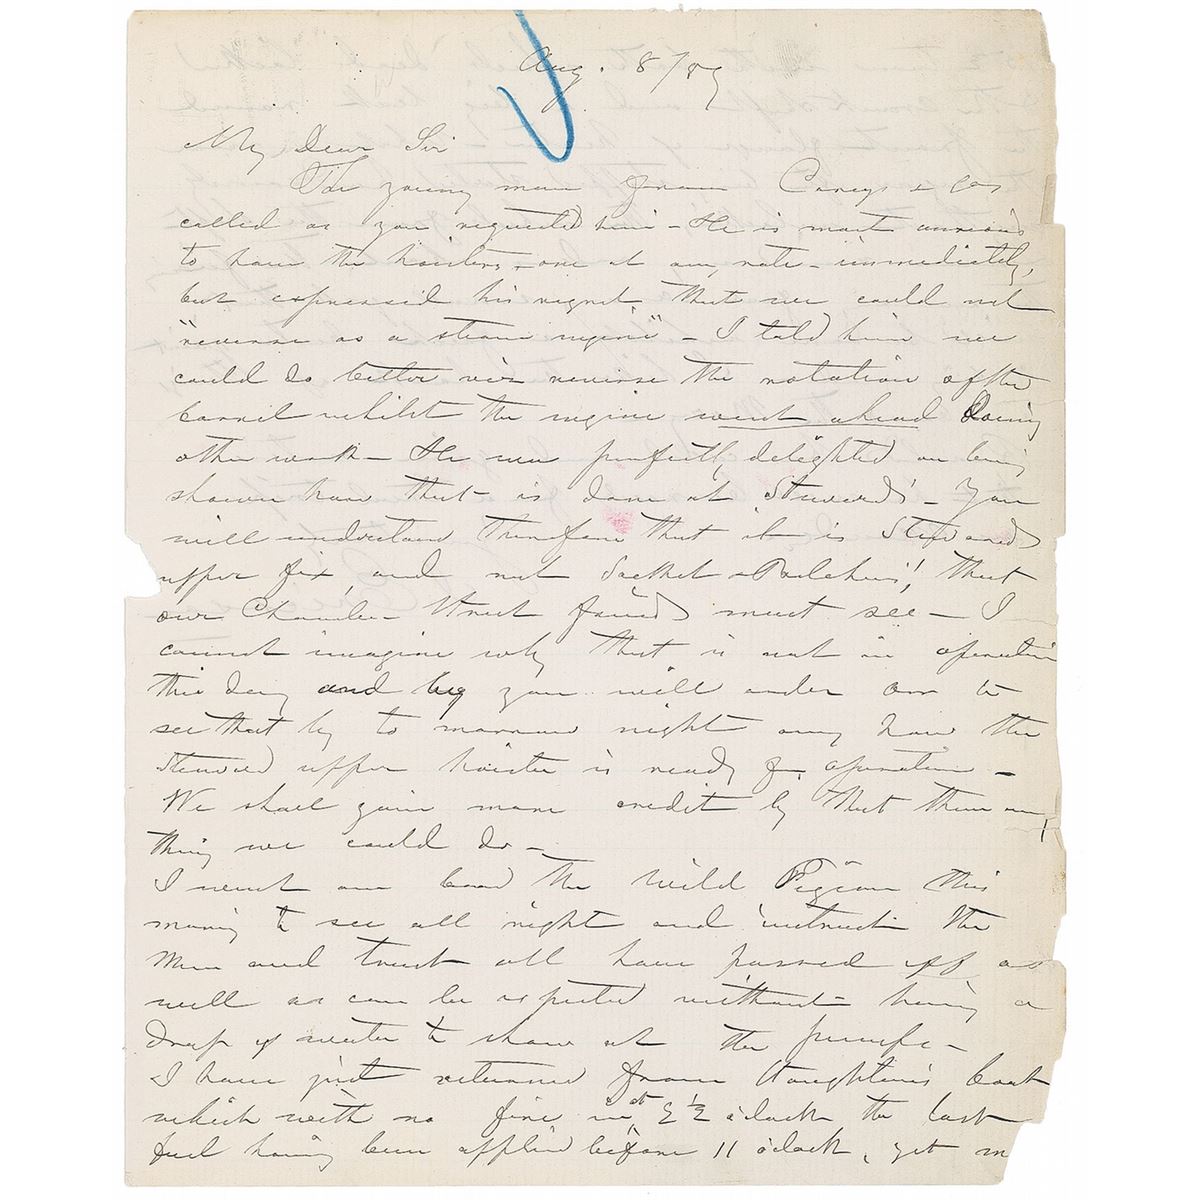 Aug. 8/89
My Dear Sir
The young man from Careys & Cos
called as you requested him - He is most anxious
to have the hoisters - one at any rate - immediately,
but expressed his regret that we could not
"reverse as a steam engine" - I told him we
could do better viz reverse the rotation of the
barrel whilst the engine went ahead doing
other work - He was perfectly delighted on being
shown how that is done at Stewards' - You
will understand therefore that it is Stewards
upper fix, and not Sacket & Belchers'! that
our Chamber Street friend must see - I
cannot imagine why that is not in operation
this day and beg you will order Orr to
see that by to morrow night any how the
Steward upper hoister is ready for operation -
We shall gain more credit by that than any
thing we could do -
I went on board the Wild Pigeon this
morning to see all right and instruct the
Men and trust all have passed off as
well as can be expected without having a
drop of water to show at the pump -
I have just returned from Houghton's boat
which with no fire in at 2 ½ o'clock the last
fuel having been applied before 11 o'clock, yet